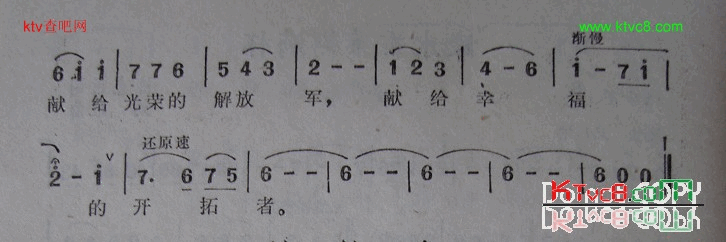 ktv查吧网 www.ktvc8.com
渐慢
6 i i | 7 7 6 | 5 4 3 | 2 - - | 1 2 3 | 4 - 6 | i - 7 i |
献给光荣的解放军，献给幸福
还原速
2 - i ∨ | 7. 6 7 5 | 6 - - | 6 - - | 6 - - | 6 - - | 6 0 0 ‖
的开拓者。
KTvc8.com